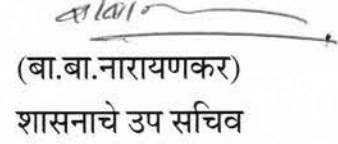 (बा.बा.नारायणकर)
शासनाचे उप सचिव